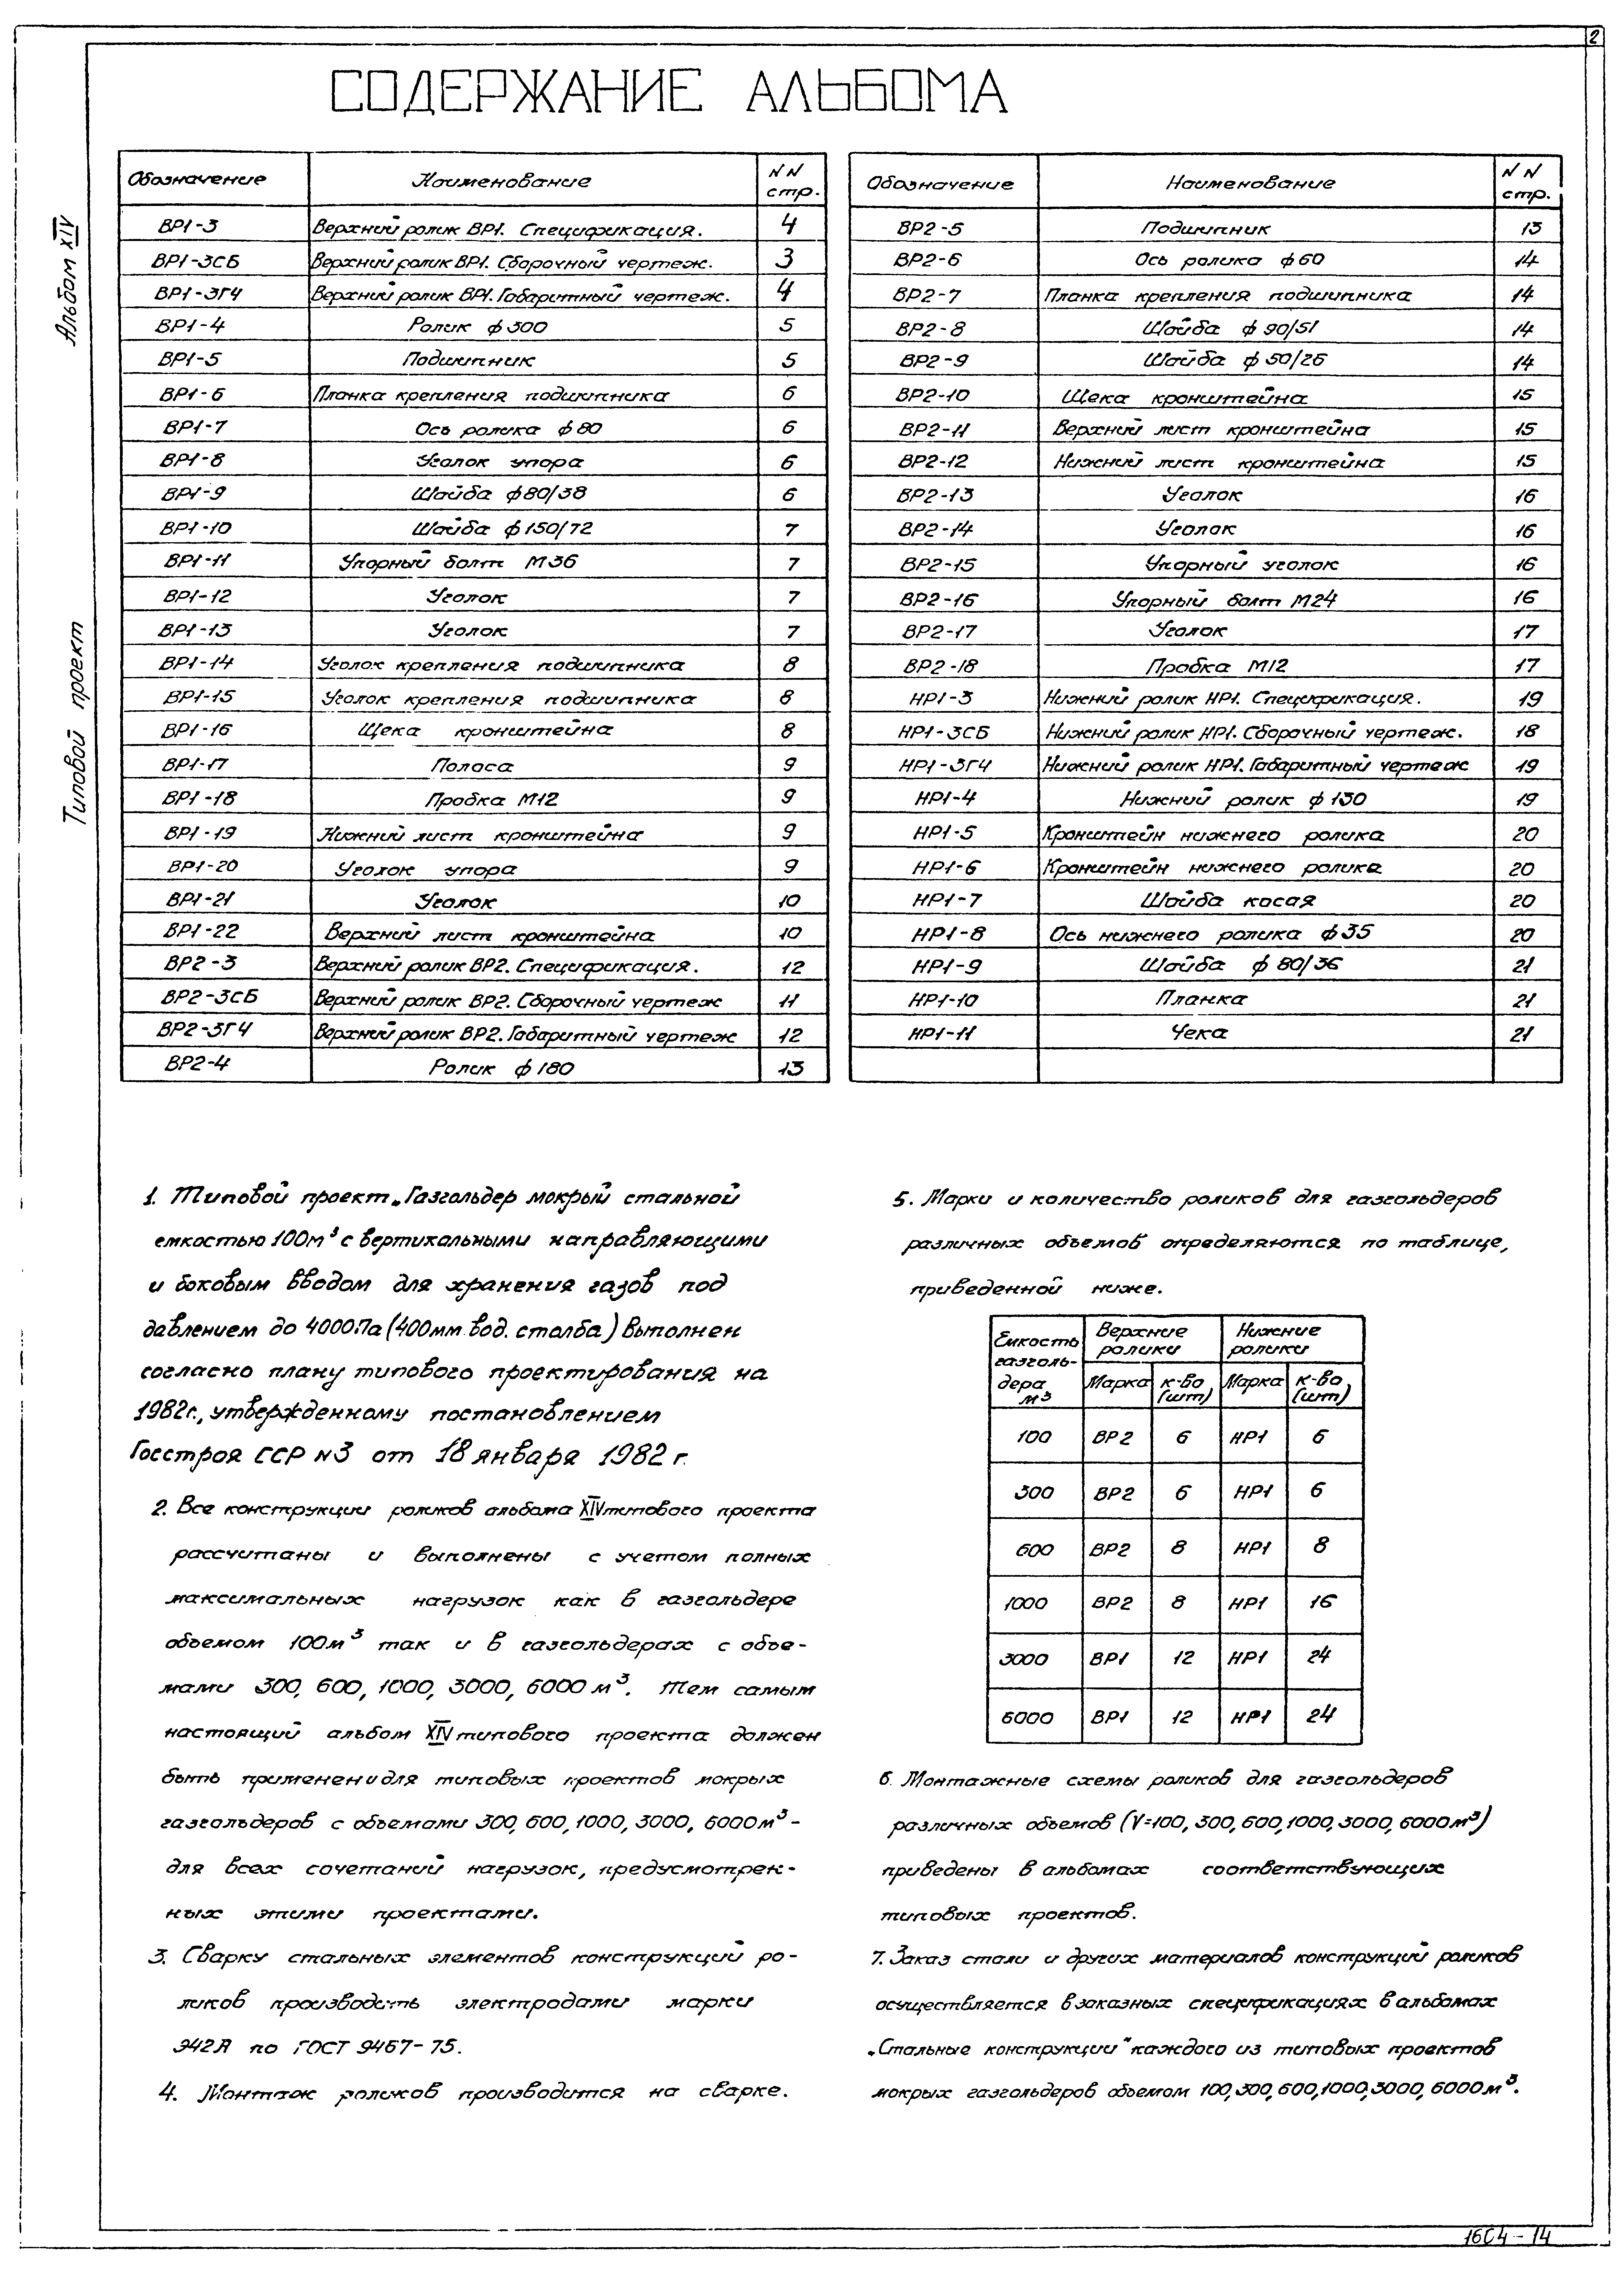 2
СОДЕРЖАНИЕ АЛЬБОМА
Альбом XIV
Типовой проект
Обозначение Наименование NN стр.
ВР1-3 Верхний ролик ВР1. Спецификация. 4
ВР1-3СБ Верхний ролик ВР1. Сборочный чертеж. 3
ВР1-3ГЧ Верхний ролик ВР1. Габаритный чертеж. 4
ВР1-4 Ролик ф 300 5
ВР1-5 Подшипник 5
ВР1-6 Планка крепления подшипника 6
ВР1-7 Ось ролика ф 80 6
ВР1-8 Уголок упора 6
ВР1-9 Шайба ф 80/38 6
ВР1-10 Шайба ф 150/72 7
ВР1-11 Упорный болт М36 7
ВР1-12 Уголок 7
ВР1-13 Уголок 7
ВР1-14 Уголок крепления подшипника 8
ВР1-15 Уголок крепления подшипника 8
ВР1-16 Щека кронштейна 8
ВР1-17 Полоса 9
ВР1-18 Пробка М12 9
ВР1-19 Нижний лист кронштейна 9
ВР1-20 Уголок упора 9
ВР1-21 Уголок 10
ВР1-22 Верхний лист кронштейна 10
ВР2-3 Верхний ролик ВР2. Спецификация. 12
ВР2-3СБ Верхний ролик ВР2. Сборочный чертеж 11
ВР2-3ГЧ Верхний ролик ВР2. Габаритный чертеж 12
ВР2-4 Ролик ф 180 13
Обозначение Наименование NN стр.
ВР2-5 Подшипник 13
ВР2-6 Ось ролика ф 60 14
ВР2-7 Планка крепления подшипника 14
ВР2-8 Шайба ф 90/51 14
ВР2-9 Шайба ф 50/26 14
ВР2-10 Щека кронштейна 15
ВР2-11 Верхний лист кронштейна 15
ВР2-12 Нижний лист кронштейна 15
ВР2-13 Уголок 16
ВР2-14 Уголок 16
ВР2-15 Упорный уголок 16
ВР2-16 Упорный болт М24 16
ВР2-17 Уголок 17
ВР2-18 Пробка М12 17
НР1-3 Нижний ролик НР1. Спецификация. 19
НР1-3СБ Нижний ролик НР1. Сборочный чертеж. 18
НР1-3ГЧ Нижний ролик НР1. Габаритный чертеж 19
НР1-4 Нижний ролик ф 130 19
НР1-5 Кронштейн нижнего ролика 20
НР1-6 Кронштейн нижнего ролика 20
НР1-7 Шайба косая 20
НР1-8 Ось нижнего ролика ф 35 20
НР1-9 Шайба ф 80/36 21
НР1-10 Планка 21
НР1-11 Чека 21
1. Типовой проект „Газгольдер мокрый стальной
емкостью 100м³ с вертикальными направляющими
и боковым вводом для хранения газов под
давлением до 4000Па (400мм. вод. столба) Выполнен
согласно плану типового проектирования на
1982г., утвержденному постановлением
Госстроя ССР N3 от 18 января 1982 г.
2. Все конструкции роликов альбома XIV типового проекта
рассчитаны и выполнены с учетом полных
максимальных нагрузок как в газгольдере
объемом 100м³ так и в газгольдерах с объе-
мами 300, 600, 1000, 3000, 6000 м³. Тем самым
настоящий альбом XIV типового проекта должен
быть применен и для типовых проектов мокрых
газгольдеров с объемами 300, 600, 1000, 3000, 6000м³ -
для всех сочетаний нагрузок, предусмотрен-
ных этими проектами.
3. Сварку стальных элементов конструкций ро-
ликов производить электродами марки
Э42А по ГОСТ 9467-75.
4. Монтаж роликов производится на сварке.
5. Марки и количество роликов для газгольдеров
различных объемов определяются по таблице,
приведенной ниже.
Емкость газголь-дера м³ Верхние ролики Нижние ролики
Марка к-во (шт) Марка к-во (шт)
100 ВР2 6 НР1 6
300 ВР2 6 НР1 6
600 ВР2 8 НР1 8
1000 ВР2 8 НР1 16
3000 ВР1 12 НР1 24
6000 ВР1 12 НР1 24
6. Монтажные схемы роликов для газгольдеров
различных объемов (V=100, 300, 600, 1000, 3000, 6000м³)
приведены в альбомах соответствующих
типовых проектов.
7. Заказ стали и других материалов конструкций роликов
осуществляется в заказных спецификациях в альбомах
„Стальные конструкции" каждого из типовых проектов
мокрых газгольдеров объемом 100, 300, 600, 1000, 3000, 6000м³.
16С4-14